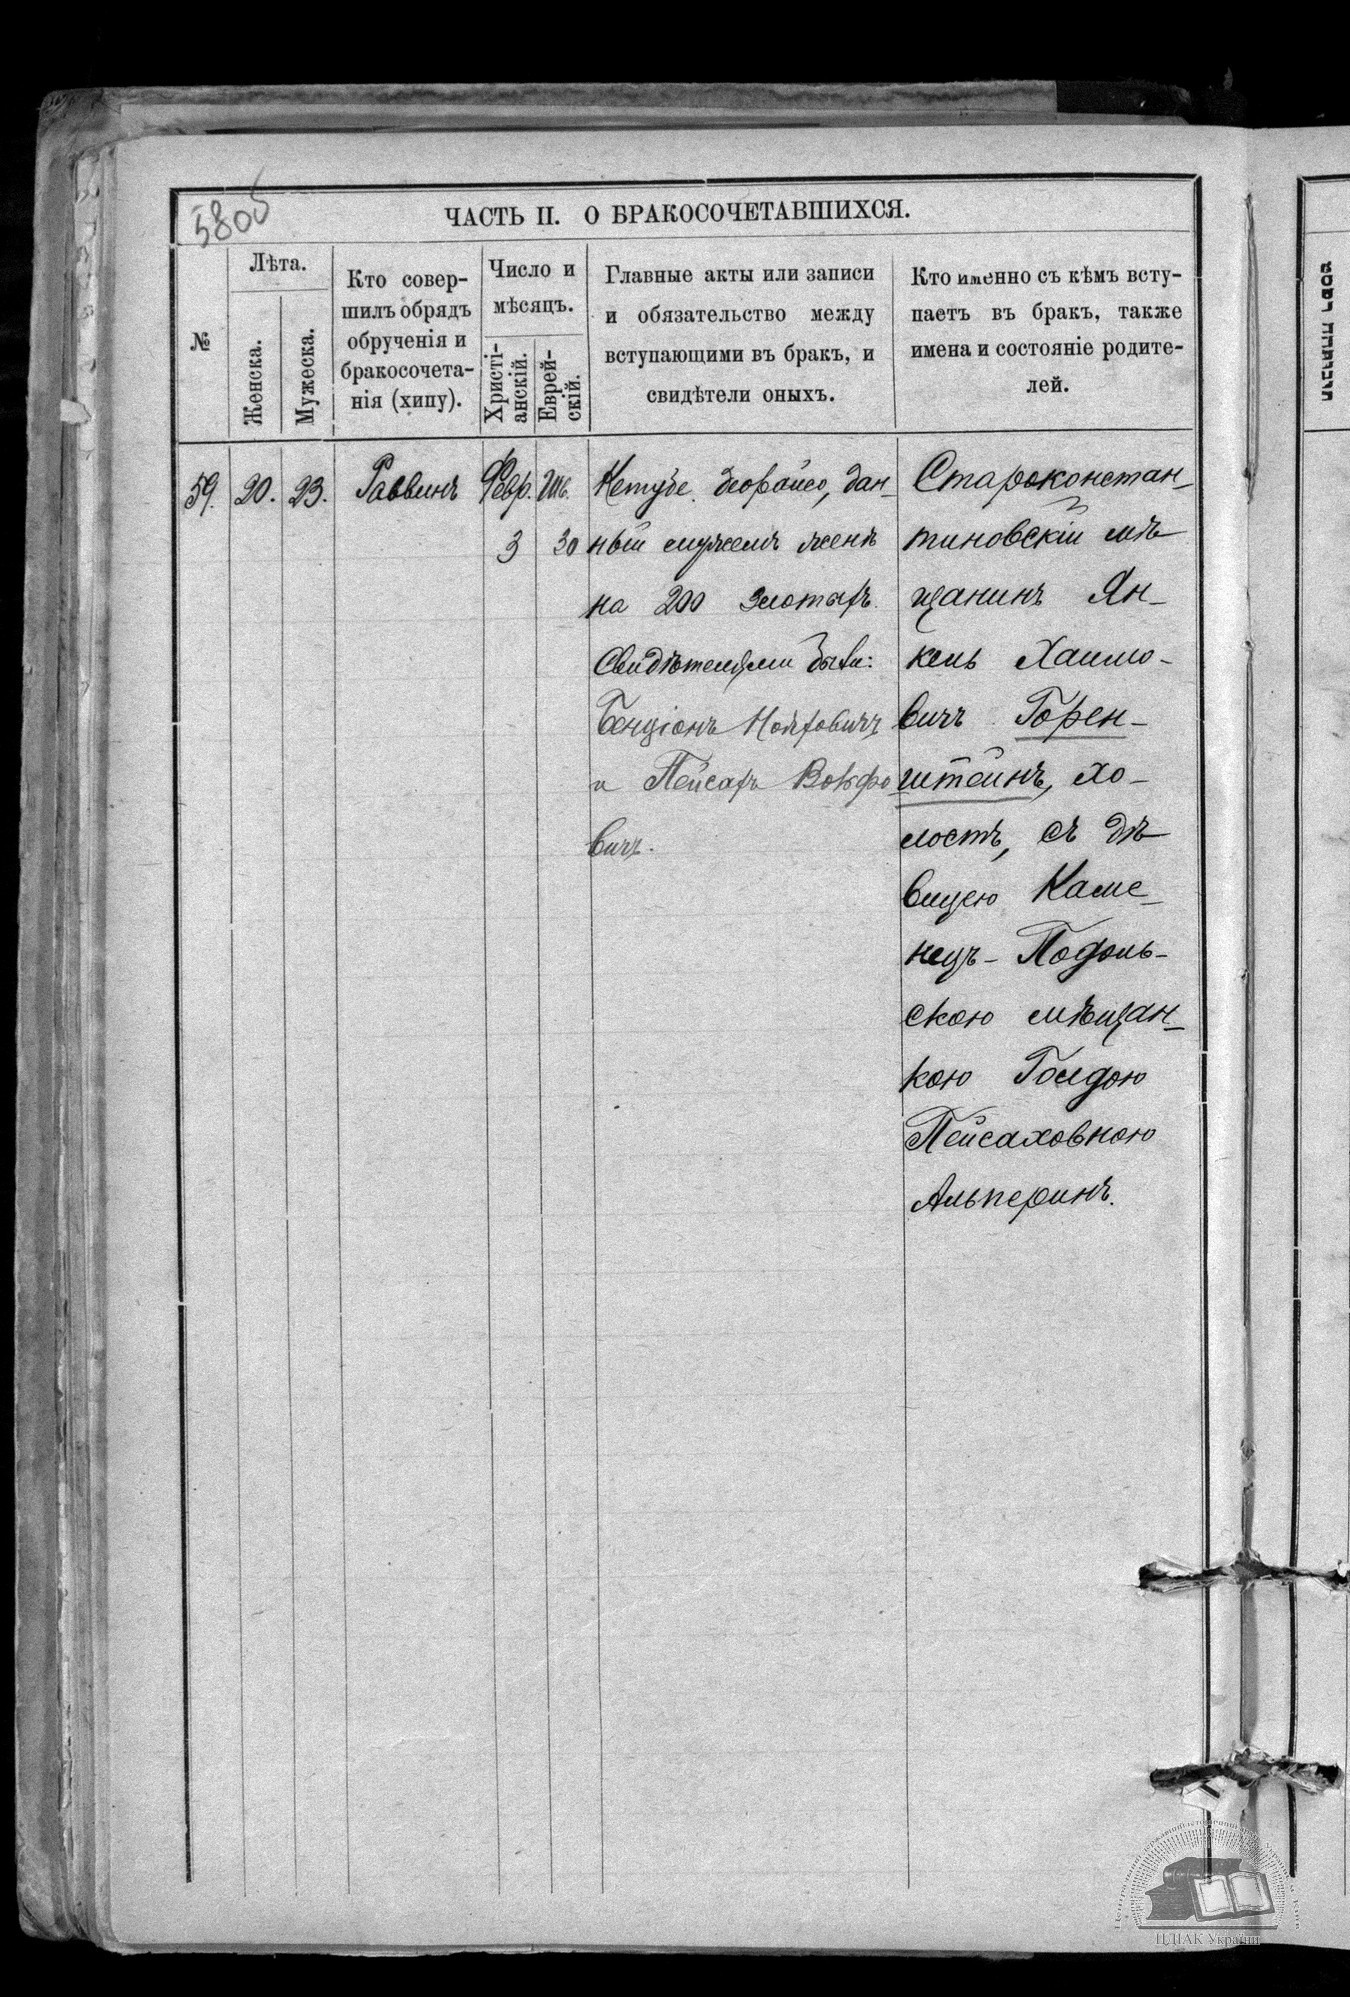 5805
ЧАСТЬ II. О БРАКОСОЧЕТАВШИХСЯ.
№
Лѣта.
Женска.
Мужеска.
Кто совер-
шилъ обрядъ
обрученія и
бракосочета-
нія (хипу).
Число и
мѣсяцъ.
Христі-
анскій.
Еврей-
скій.
Главные акты или записи
и обязательство между
вступающими въ бракъ, и
свидѣтели оныхъ.
Кто именно съ кѣмъ всту-
паетъ въ бракъ, также
имена и состояніе родите-
лей.
59.
20.
23.
Раввинъ
Февр.
3
Шв.
30
Кетубе деорайсо, дан-
ный мужемъ женѣ
на 200 злотыхъ.
Свидѣтелями были:
Бенціонъ
и Пейсахъ Вольфо
вичъ.
Староконстан-
тиновскій мѣ-
щанинъ Ян-
кель Хаимо-
вичъ Горен-
штейнъ, хо-
лостъ, съ дѣ-
вицею Каме-
нецъ-Подоль-
скою мѣщан-
кою Голдою
Пейсаховною
Альперинъ.
ЦДІАК України